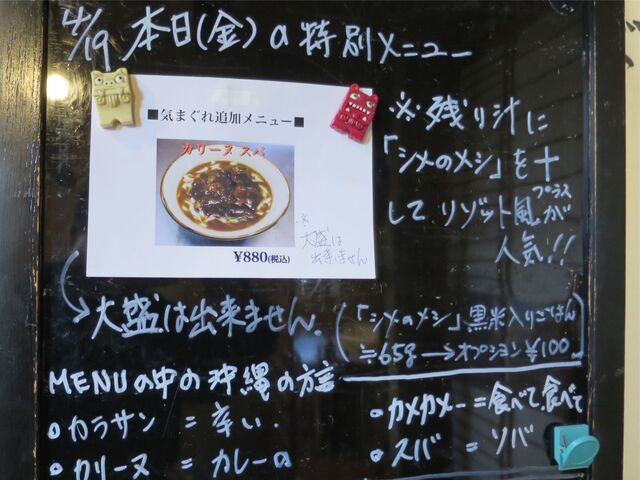 4/19 本日(金)の特別メニュー
■気まぐれ追加メニュー■
カリーヌスバ
¥880(税込)
※大盛は
出来ません
※残り汁に
「シメのメシ」を十
プラス
して リゾット風が
人気!!
→大盛は出来ません。
(「シメのメシ」黒米入りごはん
≒65g→オプション¥100)
MENUの中の沖縄の方言
・カラサン = 辛い.
・カリーヌ = カレーの
・カメカメー=食べて、食べて
・スバ = ソバ